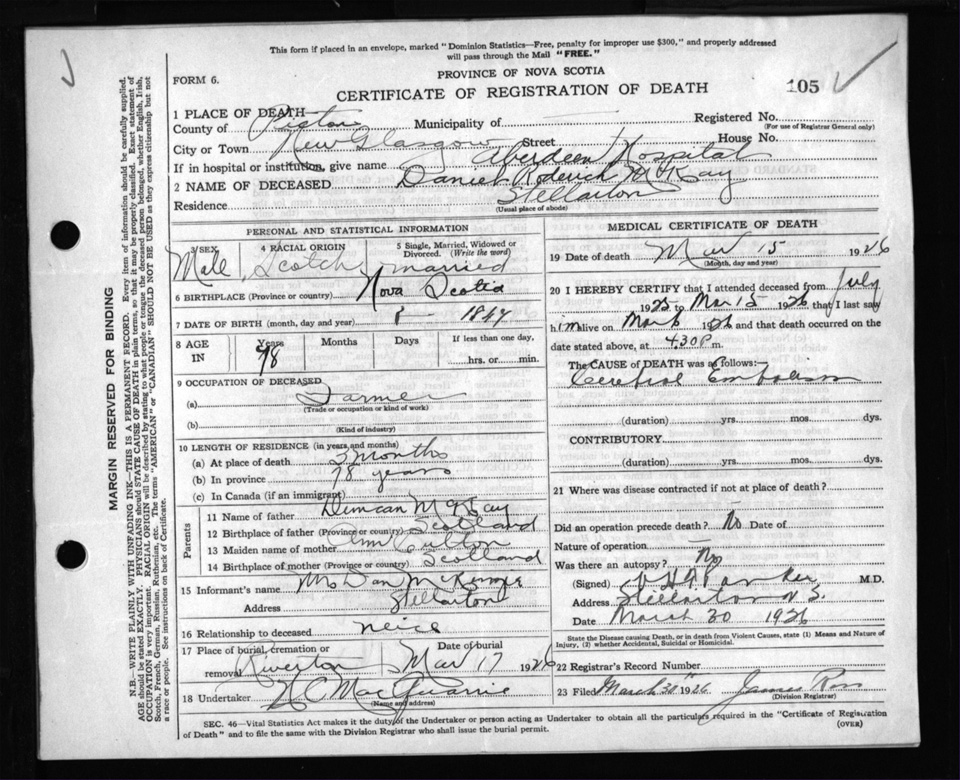 This form if placed in an envelope, marked "Dominion Statistics—Free, penalty for improper use $300," and properly addressed
will pass through the Mail "FREE."
FORM 6.
PROVINCE OF NOVA SCOTIA
CERTIFICATE OF REGISTRATION OF DEATH
105
MARGIN RESERVED FOR BINDING
N.B.—WRITE PLAINLY WITH UNFADING INK—THIS IS A PERMANENT RECORD. Every item of information should be carefully supplied.
AGE should be stated EXACTLY. PHYSICIANS should STATE CAUSE OF DEATH in plain terms, so that it may be properly classified. Exact statement of
OCCUPATION is very important. RACIAL ORIGIN will be described by stating to what people or tongue the deceased person belonged, whether English, Irish,
Scotch, French, German, Russian, Ruthenian, etc. The terms "AMERICAN" or "CANADIAN" SHOULD NOT BE USED as they express citizenship but not
a race or people. See instructions on back of Certificate.
1 PLACE OF DEATH—
County of Pictou Municipality of — Registered No.
(For use of Registrar General only)
City or Town New Glasgow Street House No.
If in hospital or institution, give name Aberdeen Hospital
2 NAME OF DECEASED Daniel Roderick McKay
Residence Stellarton
(Usual place of abode)
PERSONAL AND STATISTICAL INFORMATION
3 SEX 4 RACIAL ORIGIN 5 Single, Married, Widowed or
Divorced. (Write the word)
Male Scotch married
6 BIRTHPLACE (Province or country) Nova Scotia
7 DATE OF BIRTH (month, day and year)
8 AGE IN Years Months Days If less than one day,
78 hrs. or min.
9 OCCUPATION OF DECEASED
(a) Farmer
(Trade or occupation or kind of work)
(b)
(Kind of industry)
10 LENGTH OF RESIDENCE (in years and months)
(a) At place of death months
(b) In province 78 years
(c) In Canada (if an immigrant)
Parents
11 Name of father Duncan McKay
12 Birthplace of father (Province or country) Scotland
13 Maiden name of mother Ann
14 Birthplace of mother (Province or country) Scotland
15 Informant's name Mrs Dan McKenzie
Address Stellarton
16 Relationship to deceased neice
17 Place of burial, cremation or Date of burial
removal Riverton Mar 17 1926
18 Undertaker MacQuarrie
(Name and address)
MEDICAL CERTIFICATE OF DEATH
19 Date of death Mar 15 1926
(Month, day and year)
20 I HEREBY CERTIFY that I attended deceased from July
1925 to Mar 15 1926 that I last saw
him alive on Mar 6 1926 and that death occurred on the
date stated above, at 4.30 P m.
The CAUSE OF DEATH was as follows:—
Cerebral Embolism
(duration) yrs. mos. dys.
CONTRIBUTORY
(duration) yrs. mos. dys.
21 Where was disease contracted if not at place of death?
Did an operation precede death? No Date of
Nature of operation —
Was there an autopsy? No
(Signed) M.D.
Address Stellarton N.S.
Date March 30 1926
State the Disease causing Death, or in death from Violent Causes, state (1) Means and Nature of
Injury, (2) whether Accidental, Suicidal or Homicidal.
22 Registrar's Record Number
23 Filed March 30th 1926 James Ross
(Division Registrar)
SEC. 46—Vital Statistics Act makes it the duty of the Undertaker or person acting as Undertaker to obtain all the particulars required in the "Certificate of Registration
of Death" and to file the same with the Division Registrar who shall issue the burial permit.
(OVER)